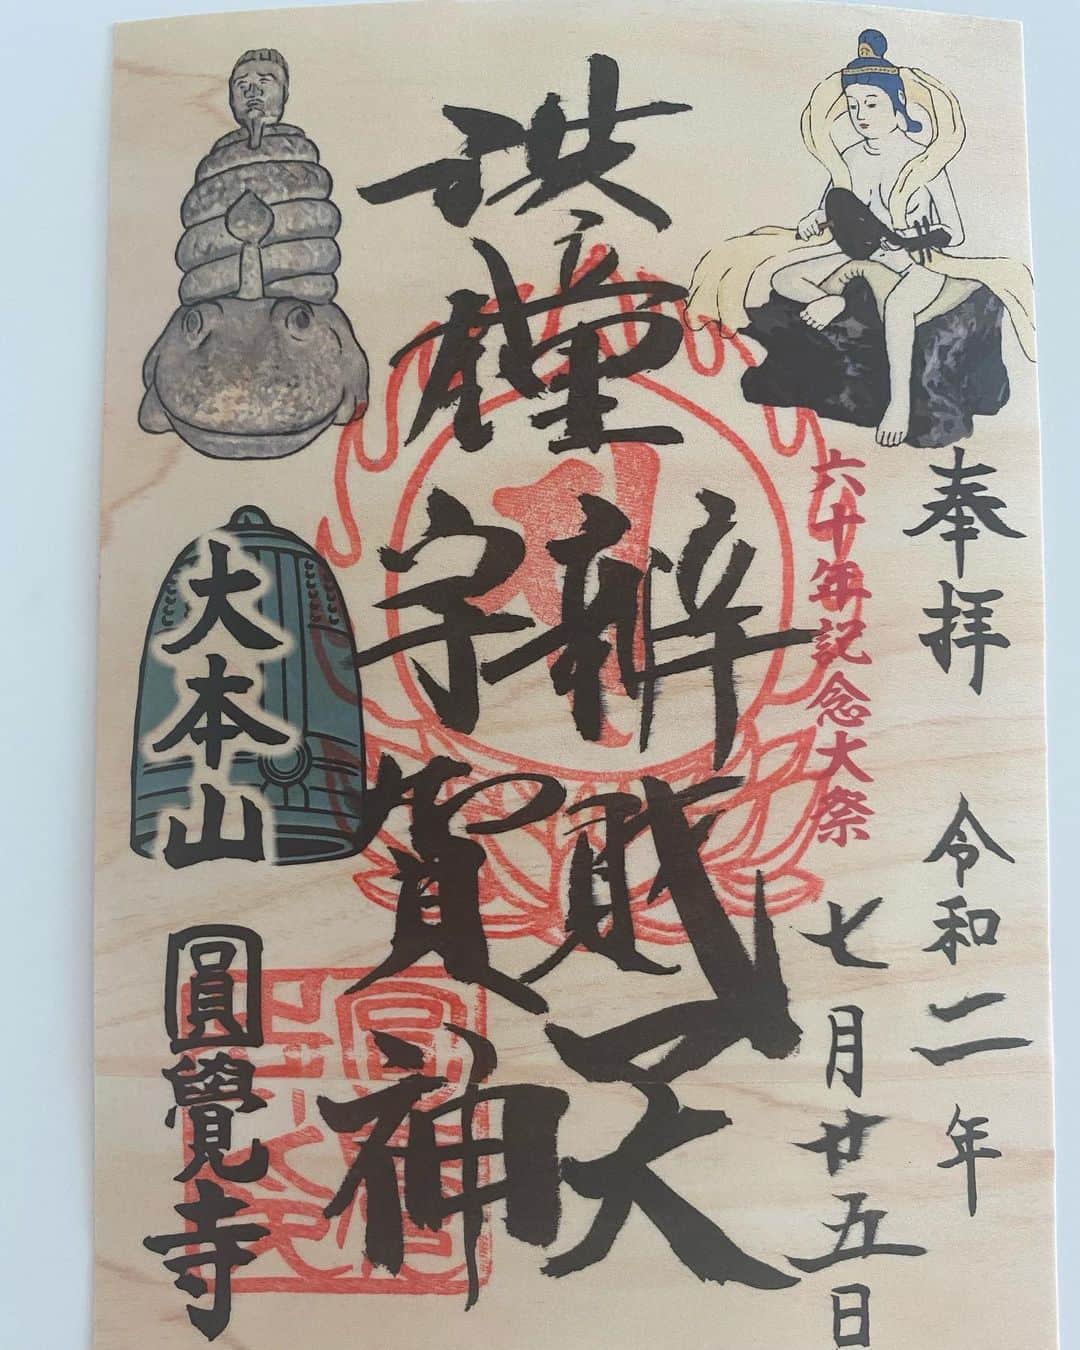 奉拝 令和二年
六十年記念大祭
七月廿五日
洪鐘
辨財天
宇賀神
大本山
圓覺寺